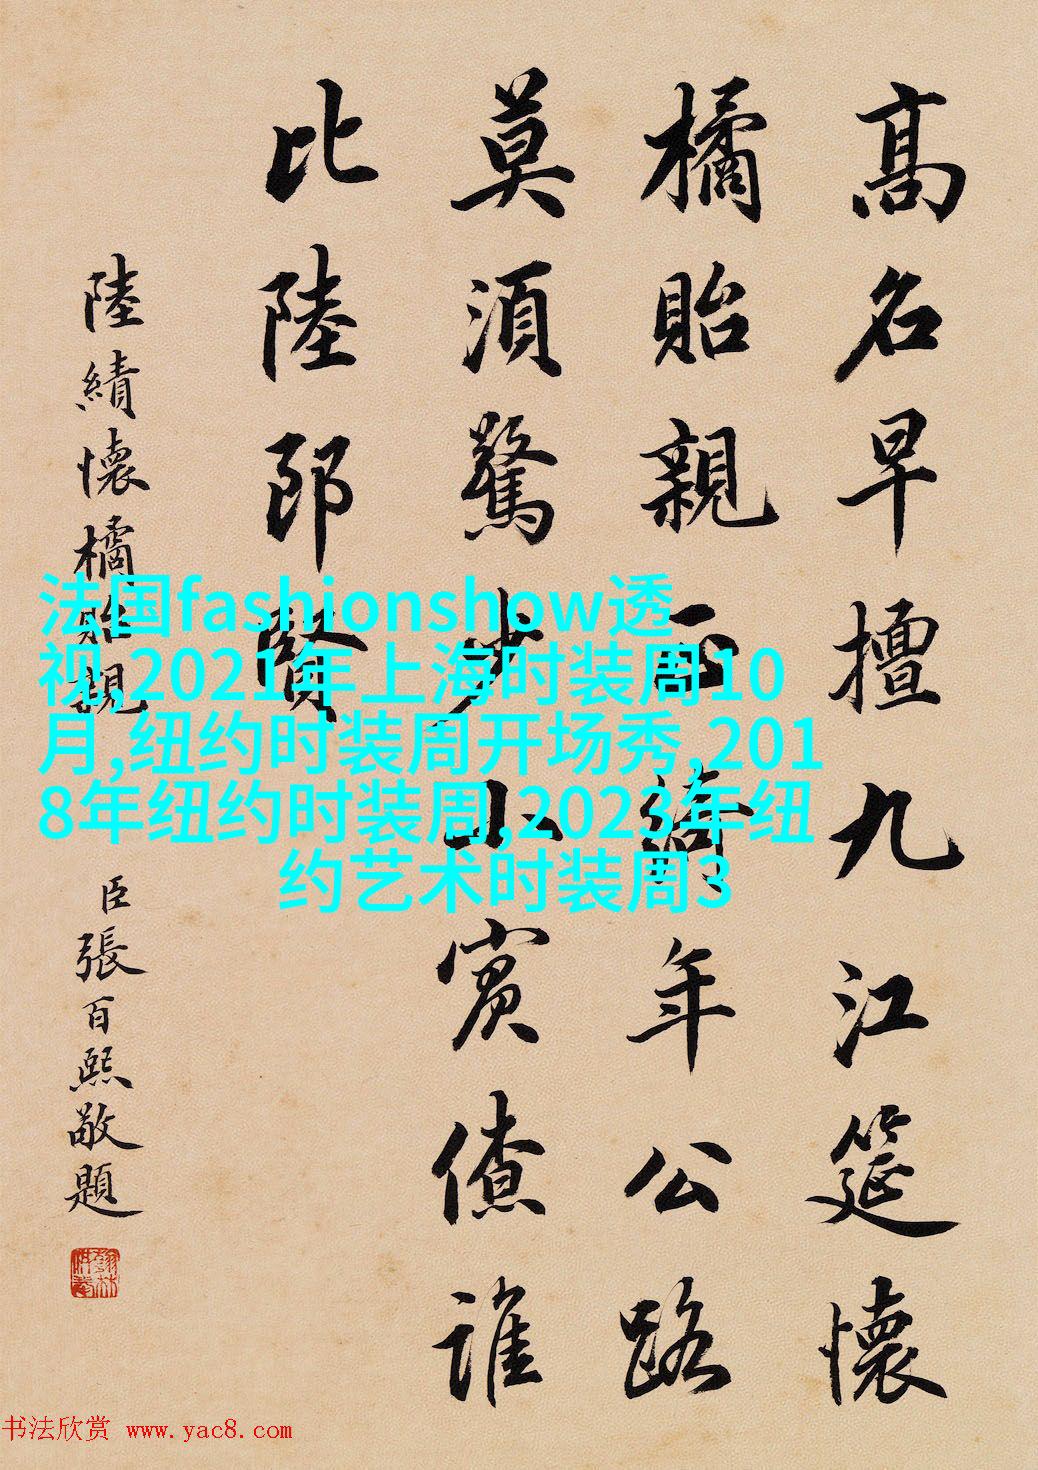 高名早擅九江筵懷
橘貽親正綺年公路
莫須驚少小賓僚誰
比陸郎賢
陸績懷橘貽親
臣張百熙敬題
法国fashionshow透
视,2021年上海时装周10
月,纽约时装周开场秀,201
8年纽约时装周,2023年纽
约艺术时装周3
书法欣赏 www.yac8.com